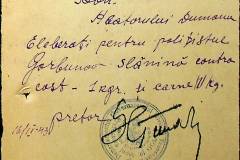 Abatorului Dumana
Eliberați pentru polițistul
Gorbunov slănină contra
cost - 1 kgr. și carne IV kg.
pretor